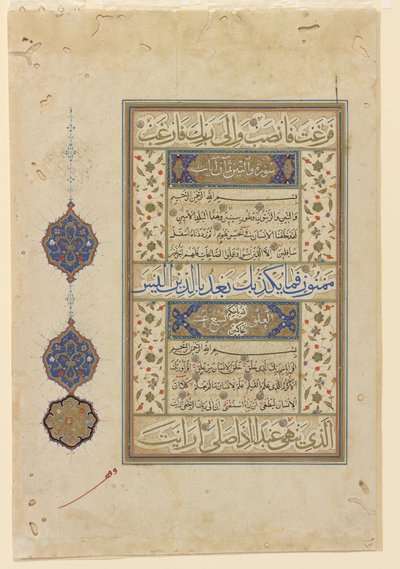 فرغت فانصب والى ربك فارغب
سورة والتين ثمان آيات
بسم الله الرحمن الرحيم
والتين والزيتون وطور سينين وهذا البلد الامين
لقد خلقنا الانسان في احسن تقويم ثم رددناه اسفل
سافلين الا الذين آمنوا وعملوا الصالحات فلهم اجر غير
ممنون فما يكذبك بعد بالدين اليس
العلق تسع عشر
بسم الله الرحمن الرحيم
اقرا باسم ربك الذي خلق خلق الانسان من علق اقرا وربك
الاكرم الذي علم بالقلم علم الانسان ما لم يعلم كلا ان
الانسان ليطغى ان رآه استغنى ان الى ربك الرجعى ارايت
الذي ينهى عبدا اذا صلى ارايت
وقف